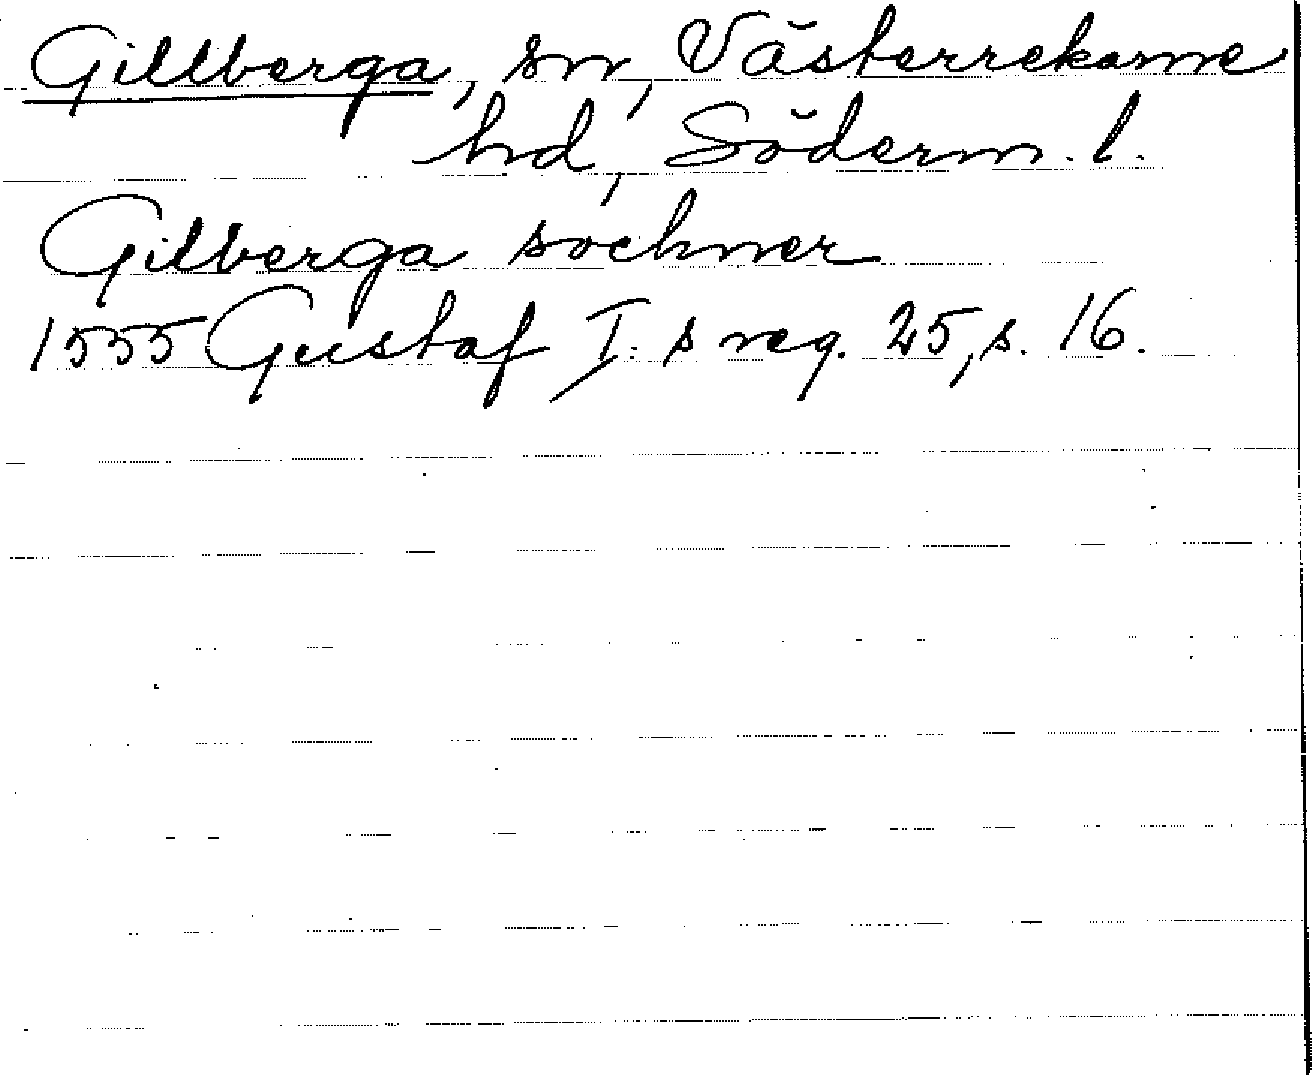 Gillberga, sn, Västerrekarne
hd, Söderm. l.
Gilberga sochner
1555 Gustaf I:s reg. 25, s. 16.